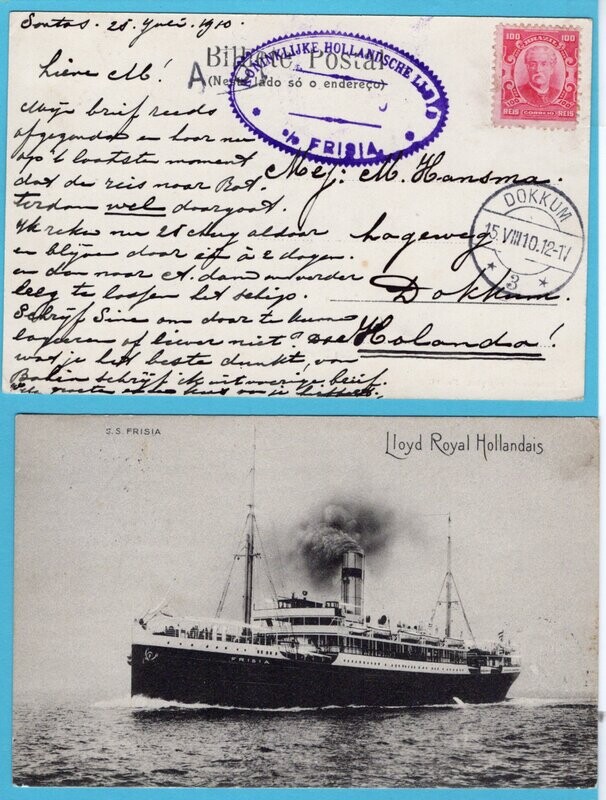 Santos. 25 Juli. 1910.
Bilhete Postal
(Neste lado só o endereço)
A
KONINKLIJKE HOLLANDSCHE LLOYD
s/s FRISIA
100 BRAZIL 100
REIS CORREIO REIS
Lieve M!
Mijn brief reeds
afgezonden en hoor nu
op 't laatste moment
dat de reis naar Rot.
terdam wel doorgaat.
Ik reken nu 28 Aug aldaar
en blijven daar 1 à 2 dagen
en dan naar A.dam om verder
leeg te lossen het schip.
Schrijf Sine om daar te kom
logeren of liever niet? Doe
wat je het beste dunkt van
Bahia schrijf ik uitvoerige brief.
Vele groeten en een kus van je
Mej: M. Hansma.
Hogeweg
Dokkum.
Holanda!
DOKKUM
15.VIII10.12-1V
3
S.S. FRISIA
Lloyd Royal Hollandais
FRISIA